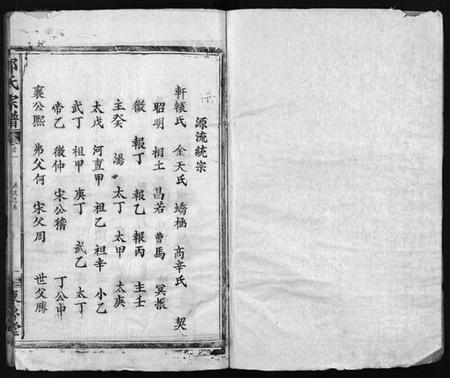 源流統宗
軒轅氏 金天氏 蟜極 高辛氏 契
昭明 相土 昌若 曹馬 冥振
微 報丁 報乙 報丙 主壬
主癸 湯 太丁 太甲 太庚
太戊 河亶甲 祖乙 祖辛 小乙
武丁 祖甲 庚丁 武乙 太丁
帝乙 微仲 宋公稽 丁公申
襄公熙 弗父何 宋父周 世父勝
氏宗譜